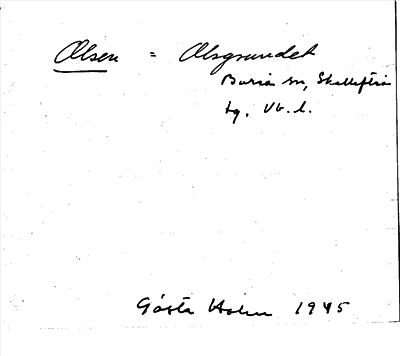 Ålsen = Ålsgrundet
Bureå sn, Skellefteå
tg. Vb. l.
Gösta Holm 1945